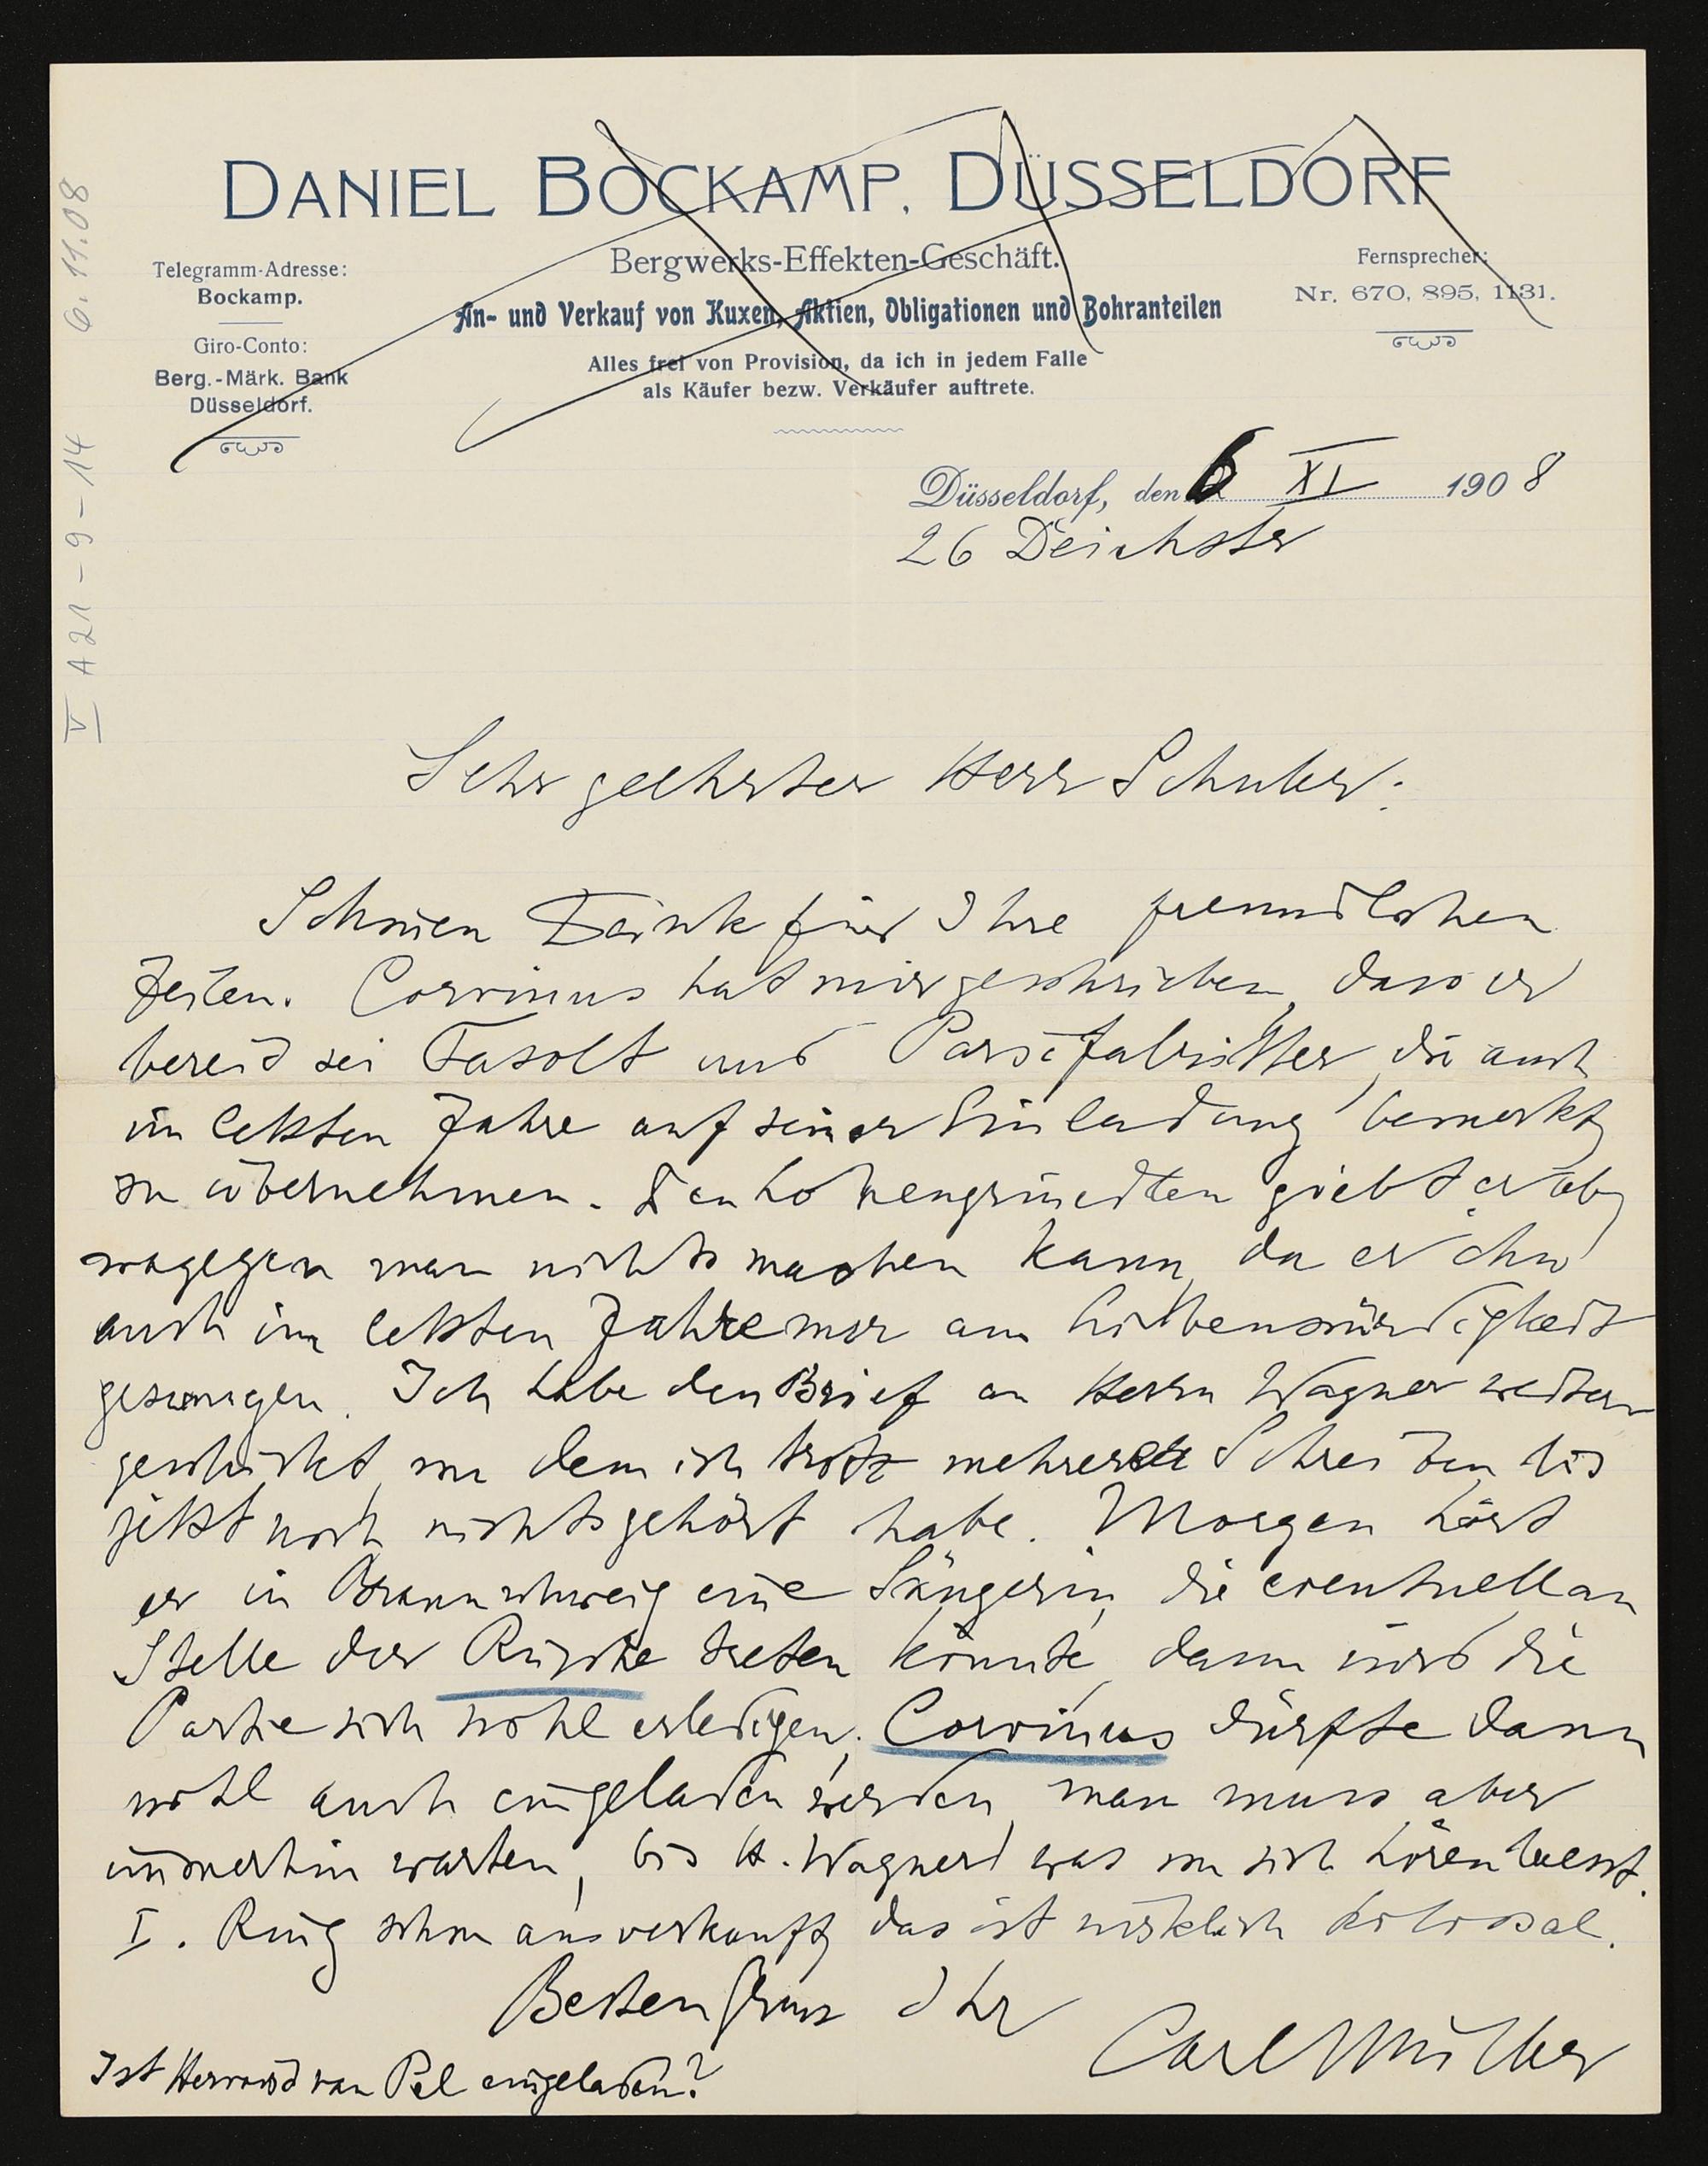 DANIEL BOCKAMP, DÜSSELDORF
Bergwerks-Effekten-Geschäft.
An- und Verkauf von Kuxen, Aktien, Obligationen und Bohranteilen
Alles frei von Provision, da ich in jedem Falle
als Käufer bezw. Verkäufer auftrete.
Telegramm-Adresse:
Bockamp.
Giro-Conto:
Berg.-Märk. Bank
Düsseldorf.
Fernsprecher:
Nr. 670, 895, 1131.
6.11.08
V A 21-9-14
Düsseldorf, den 6 XI 1908
26 Deichstr
Sehr geehrter Herr Schuler:
Schönen Dank für Ihre freundlichen
Zeilen. Corvinus hat mir geschrieben, dass er
bereid sei Fasolt und Parsifalritter, die auch
im letzten Jahre auf seiner Einladung bemerkt,
zu übernehmen. Den giebt er ab,
wogegen man nichts machen kann, da er ihn
auch im letzten Jahre nur aus Liebenswürdigkeit
gesungen. Ich habe den Brief an Herrn Wagner weiter
geschickt, von dem ich trotz mehrerer Schreiben bis
jetzt noch nichts gehört habe. Morgen hört
er in Braunschweig eine Sängerin, die eventuell an
Stelle der Rüsche treten könnte, dann wird die
Partie sich wohl erledigen. Corvinus dürfte dann
wohl auch eingeladen werden, man muss aber
immerhin warten, bis H. Wagner was von sich hören laesst.
I. Ring schon ausverkauft, das ist wirklich kolossal.
Besten Gruss Ihr
Carl Müller
Ist Herr van Pel eingeladen?